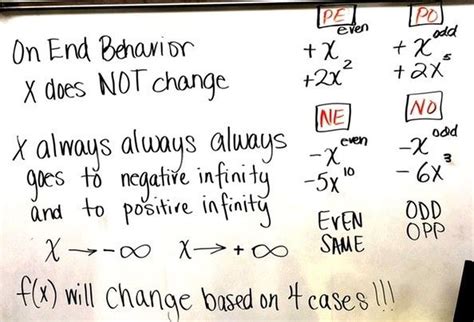 On End Behavior
X does NOT change
X always always always
goes to negative infinity
and to positive infinity
X → -∞ X → +∞
f(x) will change based on 4 cases!!!
PE
+x^even
+2x^2
PO
+x^odd
+2x^5
NE
-x^even
-5x^10
EVEN
SAME
NO
-x^odd
-6x^3
ODD
OPP